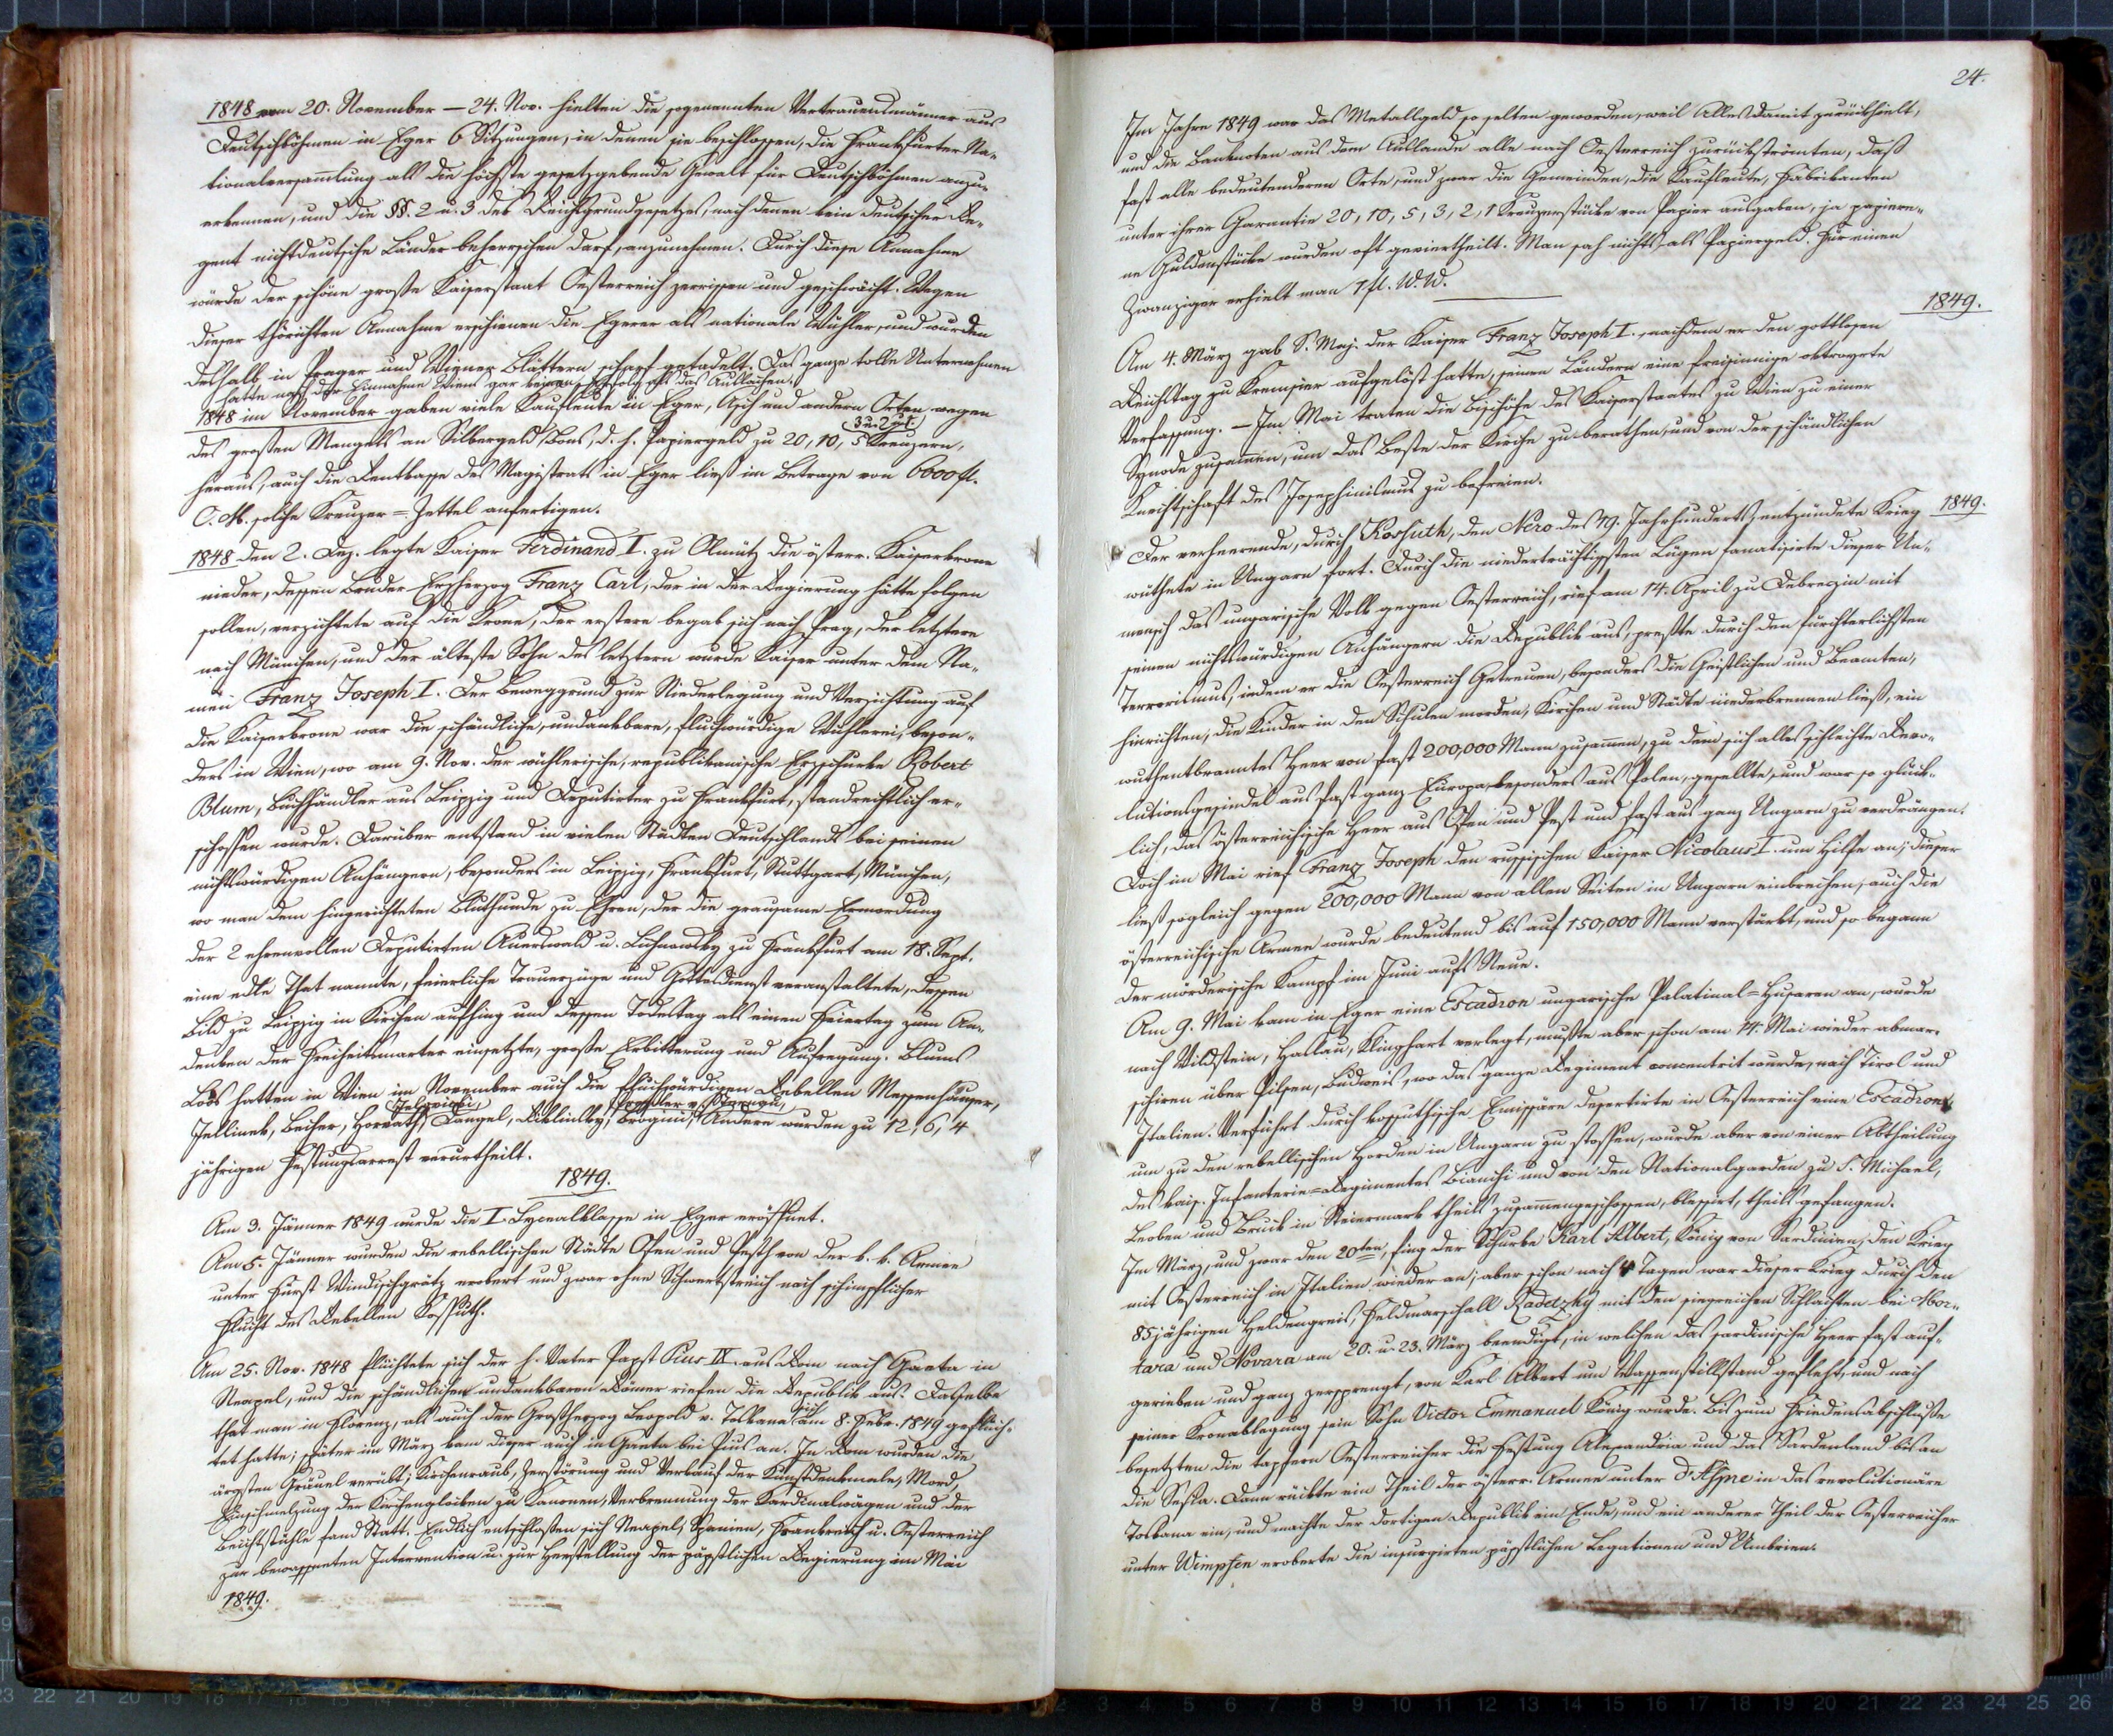 1848 vom 20. November – 24. Nov. hielten die sogenannten Vertrauensmänner aus
Deutschböhmen in Eger 6 Sitzungen, in denen sie beschlossen, die Frankfurter Na-
tionalversamlung als die höchste gesetzgebende Gewalt für Deutschböhmen anzu-
erkennen, und die §§. 2 u. 3 des Reichsgrundgesetzes, nach denen kein deutscher Re-
gent nichtdeutsche Länder beherrschen darf, anzunehmen. Durch diese Annahme
würde der schöne große Kaiserstaat Oesterreich zerrissen und geschwächt. Wegen
dieser thörichten Annahme erschienen die Egerer als nationale Wühler, und wurden
deshalb in Prager und Wiener Blättern scharf getadelt. Das ganze tolle Unternehmen
hatte nach der Einnahme Wiens gar keinen Erfolg als das Auslachen.
1848 im November gaben viele Kaufleute in Eger, Asch und andern Orten wegen
des großen Mangels an Silbergeld Bons, d. h. Papiergeld zu 20, 10, 5 Kreuzern,
3 u. 2
heraus, auch die Rentkasse des Magistrats in Eger ließ im Betrage von 6000 fl.
C. M. solche Kreuzer=Zettel anfertigen.
1848 den 2. Dez. legte Kaiser Ferdinand I. zu Olmütz die österr. Kaiserkrone
nieder, dessen Bruder Erzherzog Franz Carl, der in der Regierung hätte folgen
sollen, verzichtete auf die Krone, der erstere begab sich nach Prag, der letztere
nach München, und der älteste Sohn des letztern wurde Kaiser unter dem Na-
men Franz Joseph I. Der Beweggrund zur Niederlegung und Verzichtung auf
die Kaiserkrone war die schändliche, undankbare, fluchwürdige Wühlerei, beson-
ders in Wien, wo am 9. Nov. der wühlerische, republikanische Erzschurke Robert
Blum, Buchhändler aus Leipzig und Deputirter zu Frankfurt, standrechtlich er-
schossen wurde. Darüber entstand in vielen Städten Deutschlands bei seinen
nichtswürdigen Anhängern, besonders in Leipzig, Frankfurt, Stuttgart, München,
wo man dem hingerichteten Bluthunde zu Ehren, der die grausame Ermordung
der 2 ehrenvollen Deputirten Auerswald u. Lichnowsky zu Frankfurt am 18. Sept.
eine edle That nannte, feierliche Trauerzüge und Gottesdienst veranstaltete, dessen
Bild zu Leipzig in Kirchen aufhing und dessen Todestag als einen Feiertag zum An-
denken der Freiheitsmarter einsetzte, große Erbitterung und Aufregung. Blums
Loos hatten in Wien im November auch die fluchwürdigen Rebellen Messenhauser,
Jelovicki, Prossler v. Sternau,
Jellinek, Becher, Horvath, Dangel, Brogini, Andere wurden zu 12, 6, 4
jährigen Festungsarrest verurtheilt.
1849.
Am 3. Jänner 1849 wurde die I. Lycealklasse in Eger eröffnet.
Am 5. Jänner wurden die rebellischen Städte Ofen und Pesth von der k. k. Armee
unter Fürst Windischgrätz erobert und zwar ohne Schwertstreich nach schimpflicher
Flucht des Rebellen Kossuth.
Am 25. Nov. 1848 flüchtete sich der h. Vater Papst Pius IX. aus Rom nach Gaeta in
Neapel, und die schändlichen undankbaren Römer riefen die Republik aus. Dasselbe
that man in Florenz, als auch der Großherzog Leopold v. Toskana sich am 8. Febr. 1849 geflüch-
tet hatte; später im März kam dieser auch in Gaeta bei Pius an. In Rom wurden die
ärgsten Gräuel verübt; Kirchenraub, Zerstörung und Verkauf der Kunstdenkmale, Mord,
Einschmelzung der Kirchenglocken zu Kanonen, Verbrennung der Kardinalwägen und der
Beichtstühle fand Statt. Endlich entschloßen sich Neapel, Spanien, Frankreich u. Oesterreich
zur bewaffneten Intervention u. zur Herstellung der päpstlichen Regierung im Mai
1849.
24.
Im Jahre 1849 war das Metallgeld so selten geworden, weil Alles damit zurückhielt,
und die Banknoten aus dem Auslande alle nach Oesterreich zurückströmten, daß
fast alle bedeutenderen Orte, und zwar die Gemeinden, die Kaufleute, Fabrikanten
unter ihrer Garantie 20, 10, 5, 3, 2, 1 Kreuzerstücke von Papier ausgaben, ja papiere-
ne Guldenstücke wurden oft geviertheilt. Man sah nichts als Papiergeld. Für einen
Zwanziger erhielt man 1 fl. W. W.
1849.
Am 4. März gab S. Maj. der Kaiser Franz Joseph I., nachdem er den gottlosen
Reichstag zu Kremsier aufgelöst hatte, seinen Ländern eine freisinnige oktroyrte
Verfassung. – Im Mai traten die Bischöfe des Kaiserstaates zu Wien zu einer
Synode zusammen, um das Beste der Kirche zu berathen, und von der schändlichen
Knechtschaft des Josephinismus zu befreien.
1849.
Der verheerende, durch Kossuth, den Nero des 19. Jahrhunderts, entzündete Krieg
wüthete in Ungarn fort. Durch die niederträchtigsten Lügen fanatisirte dieser Un-
mensch das ungarische Volk gegen Oesterreich, rief am 14. April zu Debreczin mit
seinen nichtswürdigen Anhängern die Republik aus, preßte durch den fürchterlichsten
Terrorismus, indem er die Oesterreich Getreuen, besonders die Geistlichen und Beamten,
hinrichten, die Kinder in den Schulen morden, Kirchen und Städte niederbrennen ließ, ein
wuthentbranntes Heer von fast 200,000 Mann zusammen, zu dem sich alles schlechte Revo-
lutionsgesindel aus fast ganz Europa, besonders aus Polen, gesellte, und war so glück-
lich, das österreichische Heer aus Ofen und Pest und fast aus ganz Ungarn zu verdrängen.
Doch im Mai rief Franz Joseph den russischen Kaiser Nicolaus I. um Hilfe an; dieser
ließ sogleich gegen 200,000 Mann von allen Seiten in Ungarn einbrechen, auch die
österreichische Armee wurde bedeutend bis auf 150,000 Mann verstärkt, und so begann
der mörderische Kampf im Juni aufs Neue.
Am 9. Mai kam in Eger eine Escadron ungarische Palatinal=Husaren an, wurde
nach Wildstein, Haslau, Klinghart verlegt, mußte aber schon am 14. Mai wieder abmar-
schiren über Pilsen, Budweis, wo das ganze Regiment concentrit wurde, nach Tirol und
Italien. Verführt durch kossuthische Emissäre desertirte in Oesterreich eine Escadron,
um zu den rebellischen Horden in Ungarn zu stossen, wurde aber von einer Abtheilung
des kais. Infanterie=Regimentes Bianchi und von den Nationalgarden zu S. Michael,
Leoben und Bruck in Steiermark theils zusammengeschossen, blessirt, theils gefangen.
Im März, und zwar den 20ten, fing der Schurke Karl Albert, König von Sardinien, den Krieg
mit Oesterreich in Italien wieder an; aber schon nach 4 Tagen war dieser Krieg durch den
85jährigen Heldengreis, Feldmarschall Radetzky mit den siegreichen Schlachten bei Mor-
tara und Novara am 20. u. 23. März beendigt, in welchen das sardinische Heer fast auf-
gerieben und ganz zersprengt, von Karl Albert um Waffenstillstand gefleht, und nach
seiner Kronablegung sein Sohn Victor Emmanuel König wurde. Bis zum Friedensabschluße
besetzten die tapfern Oesterreicher die Festung Alexandria und das Sardenland bis an
die Sesia. Dann rückte ein Theil der österr. Armee unter d'Aspre in das revolutionäre
Toskana ein, und machte der dortigen Republik ein Ende, und ein anderer Theil der Oesterreicher
unter Wimpfen eroberte die insurgirten päpstlichen Legationen und Umbrien.